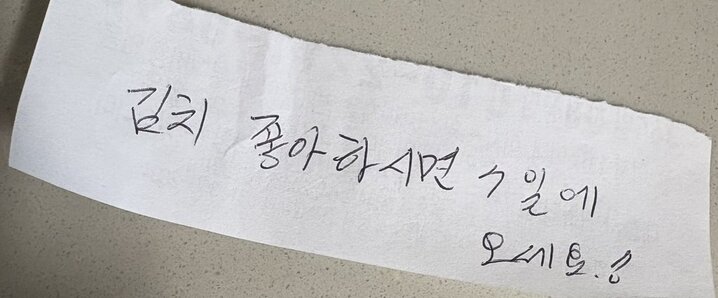 김치 좋아하시면 7일에
오세요.!!